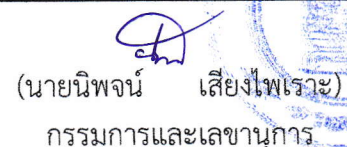 (นายนิพจน์ เสียงไพเราะ)
กรรมการและเลขานุการ